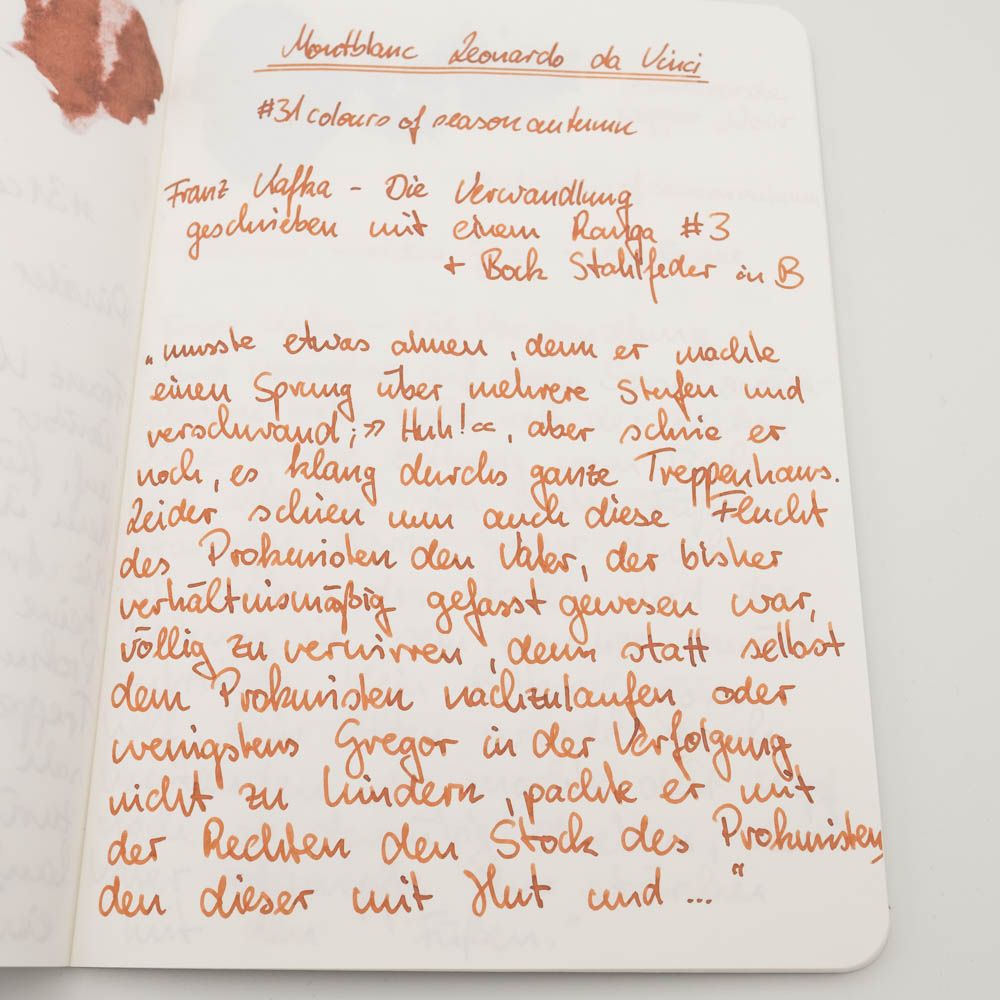 Montblanc Leonardo da Vinci
#31 colours of season autumn
Franz Kafka - Die Verwandlung
geschrieben mit einem Ranga #3
+ Bock Stahlfeder in B
„musste etwas ahnen, denn er machte
einen Sprung über mehrere Stufen und
verschwand; »Huh!«, aber schrie er
noch, es klang durchs ganze Treppenhaus.
Leider schien nun auch diese Flucht
des Prokuristen den Vater, der bisher
verhältnismäßig gefasst gewesen war,
völlig zu verwirren, denn statt selbst
dem Prokuristen nachzulaufen oder
wenigstens Gregor in der Verfolgung
nicht zu hindern, packte er mit
der Rechten den Stock des Prokuristen,
den dieser mit Hut und ..."